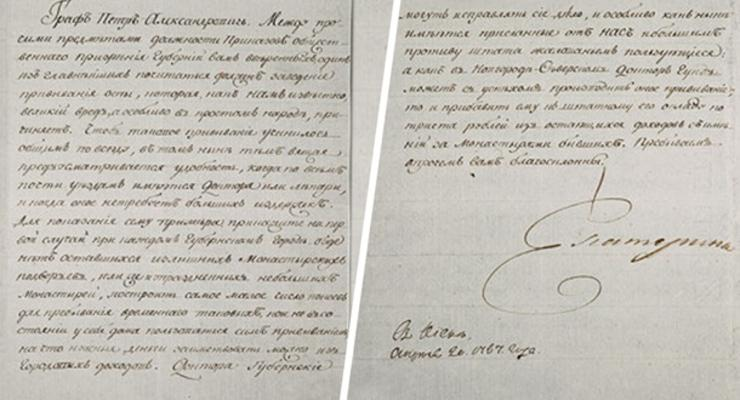 Графъ Петръ Александровичь. Между про-
чими предметами должности Приказовъ общест-
веннаго призрѣнія Губерній вамъ ввѣренныхъ, одинъ
изъ главнѣйшихъ почитаться долженъ заведеніе
прививанія оспы, которая, какъ намъ извѣстно,
великій вредъ, а особливо въ простомъ народѣ, при-
чиняетъ. Чтобъ таковое прививаніе учинилось
общимъ повсюду, въ томъ нынѣ тѣмъ вящая
предусматривается удобность, когда по всѣмъ
почти уѣздамъ имѣются Доктора или лѣкари,
и когда оное не требуетъ большихъ издержекъ.
Для показанія сему примѣра прикажите на пер-
вой случай при каждомъ Губернскомъ Городѣ,
изъ оставшихся излишнихъ Монастырскихъ
подворьевъ, или изъ упраздненныхъ небольшихъ
Монастырей, построить самое малое число покоевъ
для пребыванія временнаго таковыхъ, кои не въ со-
стояніи у себя дома пользоваться симъ прививаніемъ,
на что нужныя деньги заимствовать можно изъ
Городскихъ доходовъ. Доктора Губернскіе
могутъ исправлять сіе дѣло, и особливо какъ нынѣ
имѣются присланные отъ НАСЪ небольшимъ
противу штата жалованьемъ пользующіеся;
а какъ въ Новгородѣ-Сѣверскомъ Докторъ Гунъ
можетъ съ успѣхомъ производить оное прививаніе,
то и прибавить ему къ штатному его окладу по
триста рублей изъ остающихся доходовъ съ имѣ-
ній за Монастырями бывшихъ. Пребываемъ
впрочемъ вамъ благосклонны.
Екатерина
Въ Кіевѣ.
Апрѣля 20. 1787. года.